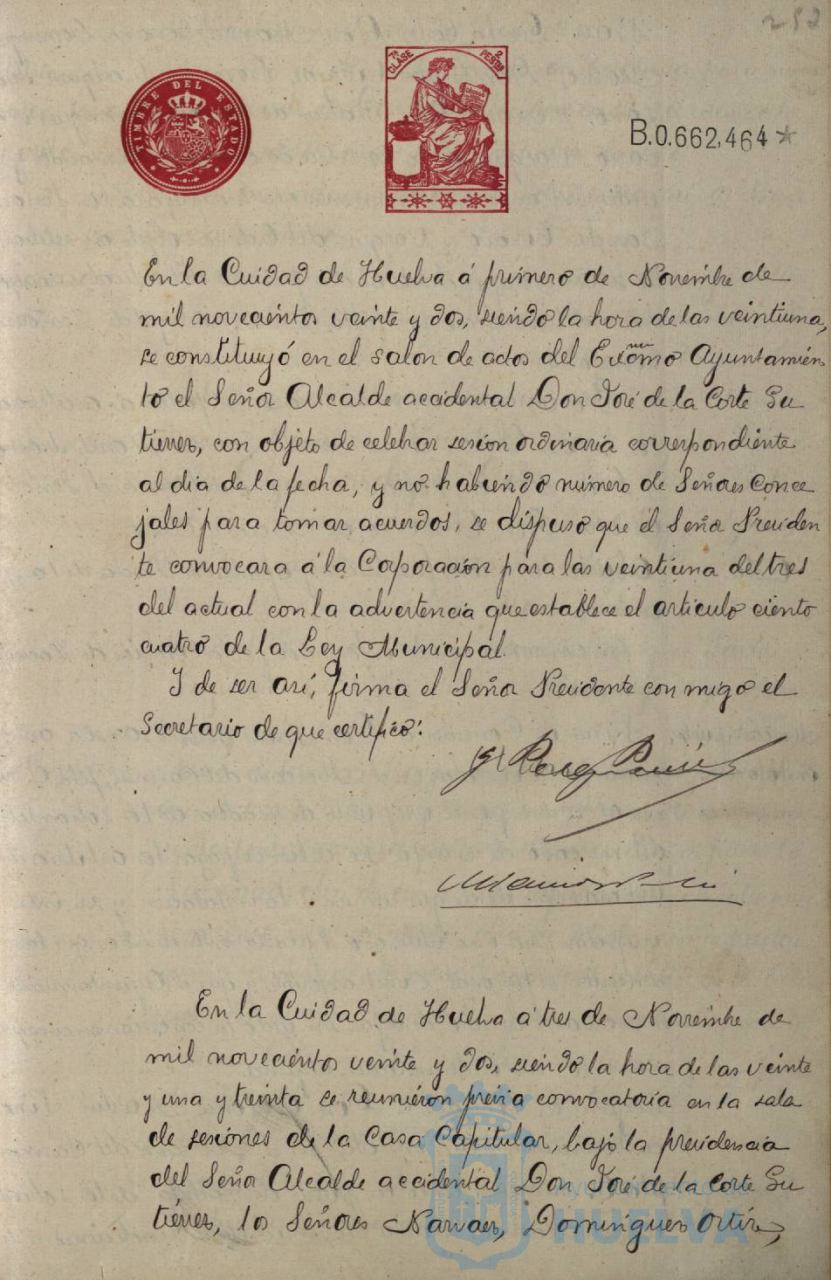 252
TIMBRE DEL ESTADO
7ª CLASE 2 PESETAS
B.0.662,464 *
En la Cuidad de Huelva á primero de Noviembre de
mil novecientos veinte y dos, siendo la hora de las veintiuna,
se constituyó en el salon de actos del Excmo Ayuntamien
to el Señor Alcalde accidental Don José de la Corte Gu
tierrez, con objeto de celebrar sesion ordinaria correspondiente
al dia de la fecha, y no habiendo número de Señores Conce
jales para tomar acuerdos, se dispuso que el Señor Presiden
te convocara á la Corporación para las veintiuna del tres
del actual con la advertencia que establece el articulo ciento
cuatro de la Ley Municipal.
Y de ser asi, firma el Señor Presidente con migo el
Secretario de que certifico:
En la Cuidad de Huelva á tres de Noviembre de
mil novecientos veinte y dos, siendo la hora de las veinte
y una y treinta se reunieron previa convocatoria en la sala
de sesiones de la Casa Capitular, bajo la presidencia
del Señor Alcalde accidental Don José de la Corte Gu
tiérrez, los Señores Narvaez, Dominguez Ortiz,
HUELVA